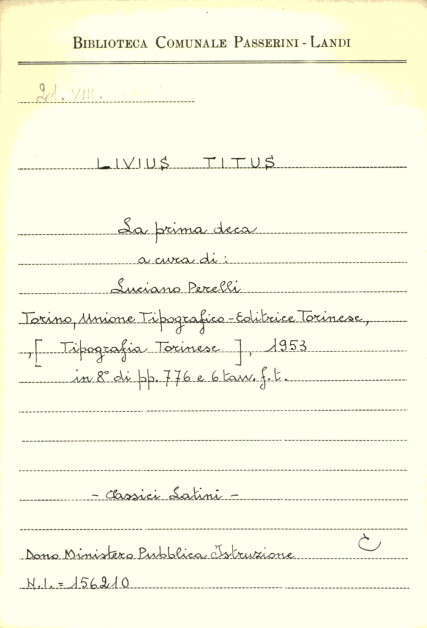 BIBLIOTECA COMUNALE PASSERINI - LANDI
21. VIII.
LIVIUS TITUS
La prima deca
a cura di :
Luciano Perelli
Torino, Unione Tipografico-Editrice Torinese,
,[ Tipografia Torinese ], 1953
in 8° di pp. 776 e 6 tavv. f.t.
- Classici Latini -
Dono Ministero Pubblica Istruzione
N.I. = 156210